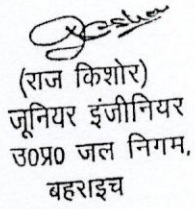 (राज किशोर)
जूनियर इंजीनियर
उ0प्र0 जल निगम,
बहराइच